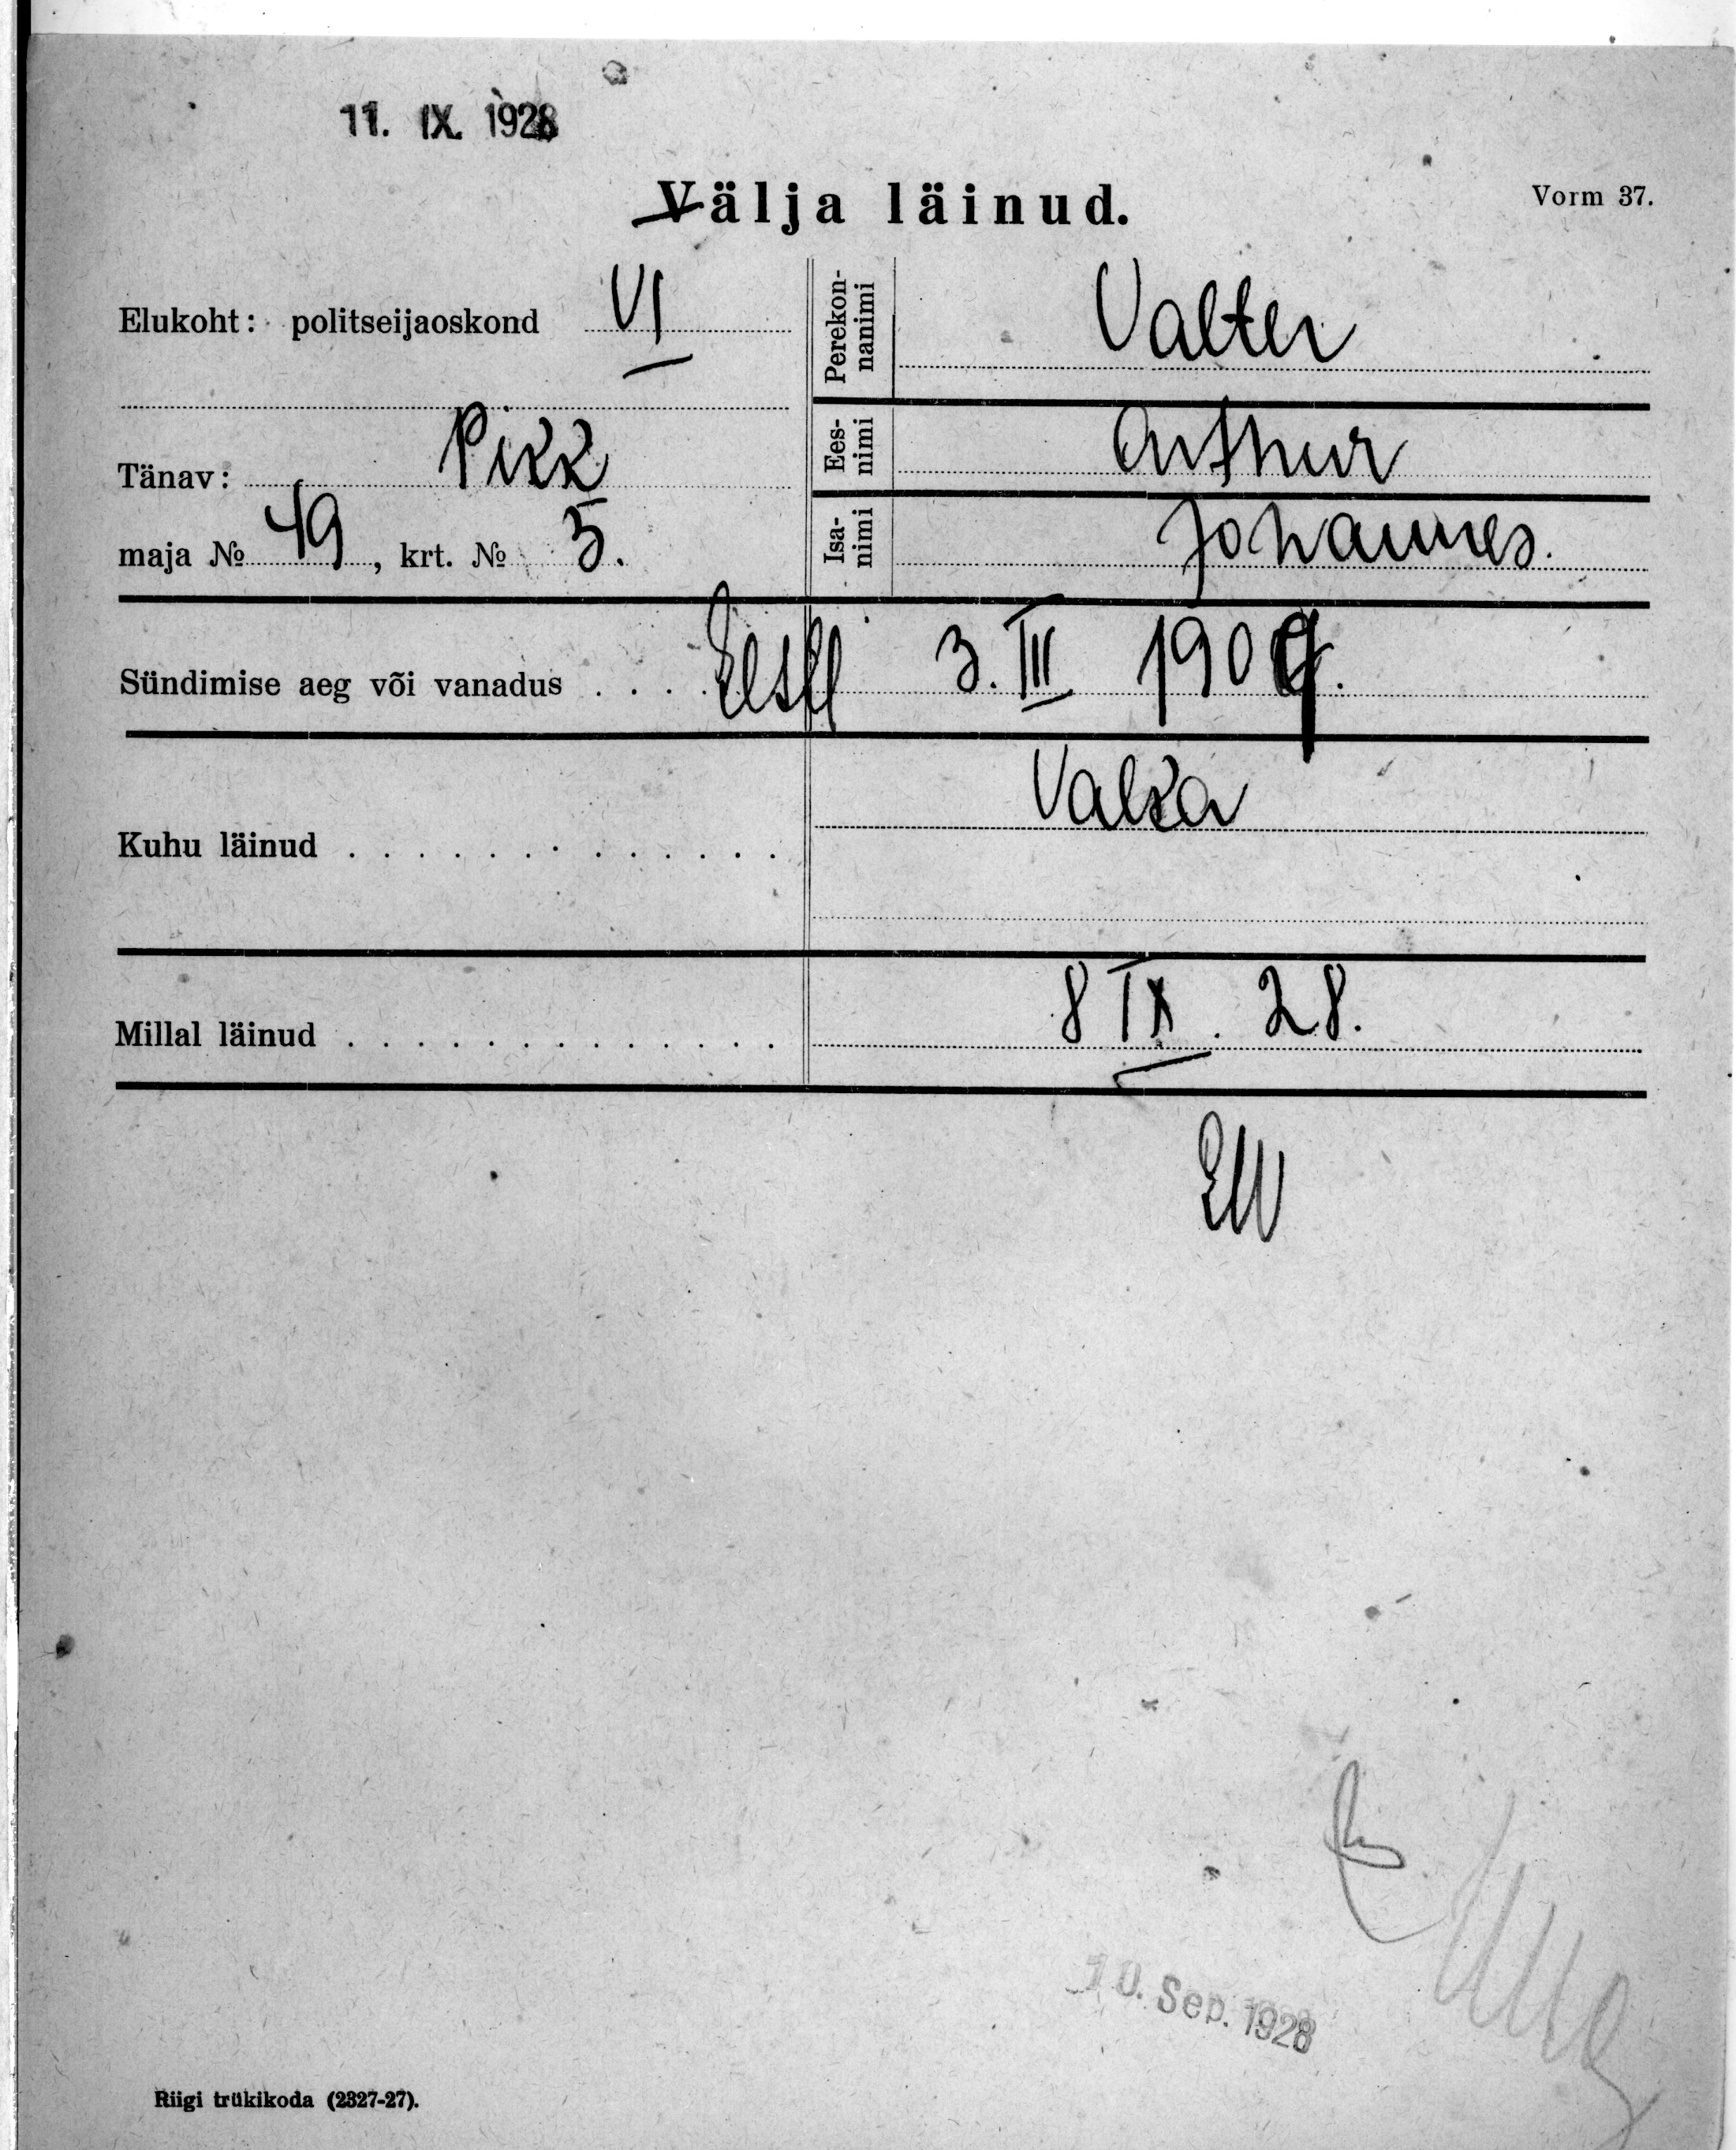 11. IX. 1928
Välja läinud.
Vorm 37.
Elukoht: politseijaoskond VI
Tänav: Pikk
maja № 49, krt. № 5.
Perekonnanimi Valter
Eesnimi Arthur
Isanimi Johannes.
Sündimise aeg või vanadus . . . . Eesti 3. III 1909.
Kuhu läinud . . . . . . . . . . . . . Valka
Millal läinud . . . . . . . . . . . . . 8 IX. 28.
EW
10. Sep. 1928
Riigi trükikoda (2327-27).